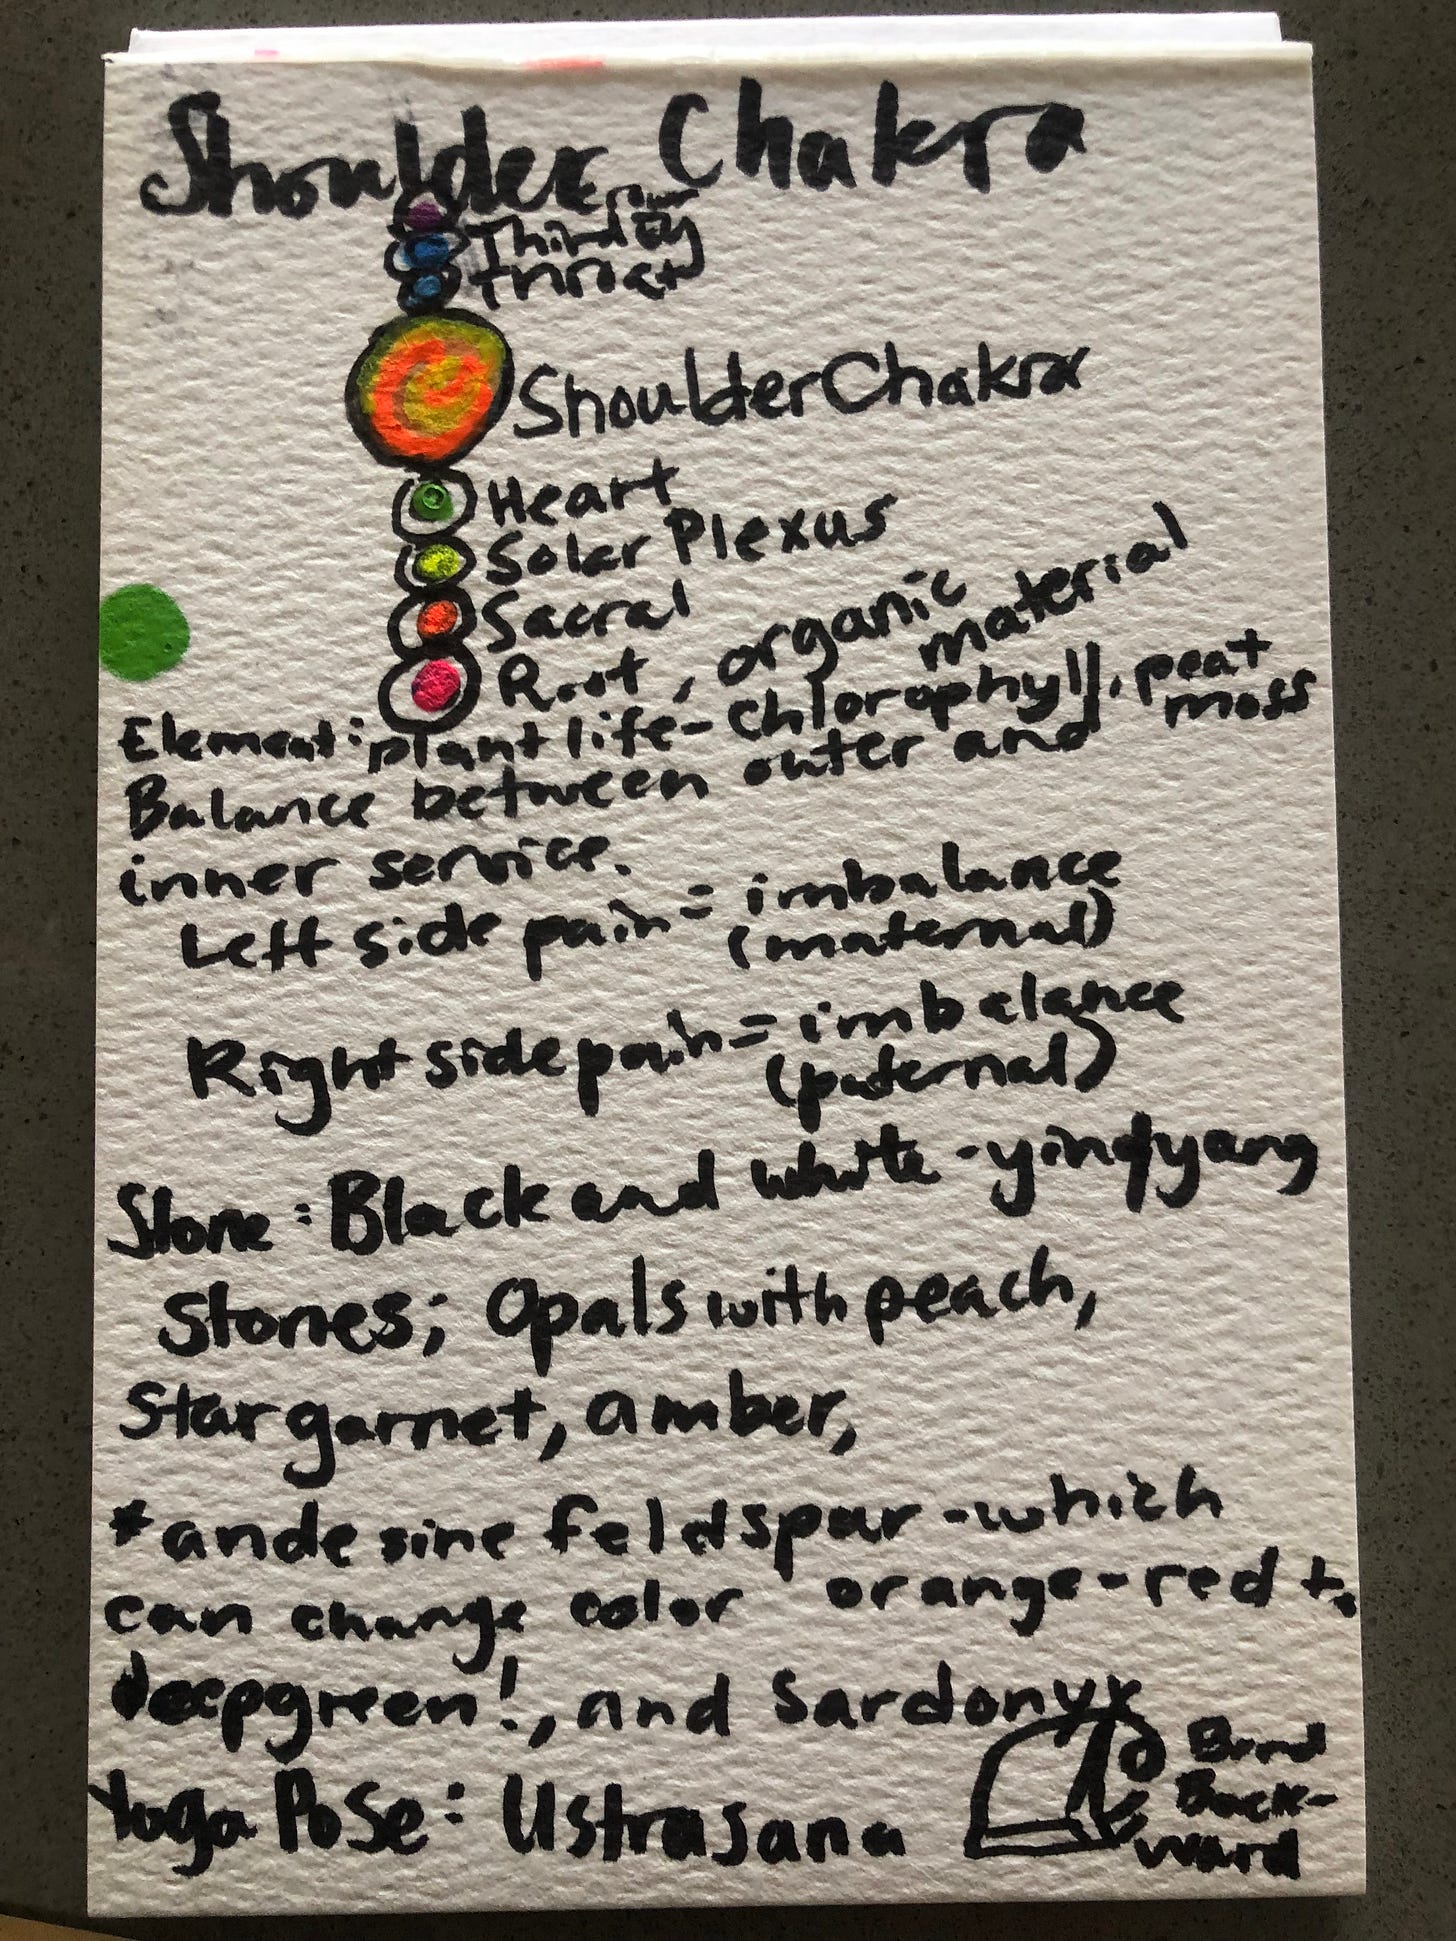 Shoulder Chakra
Crown
Third Ey
Throat
Shoulder Chakra
Heart
Solar Plexus
Sacral
Root, organic material
Element: plant life - Chlorophyll, peat moss
Balance between outer and
inner service.
Left side pain = imbalance
(maternal)
Right side pain = imbalance
(paternal)
Stone: Black and white - yin yang
Stones; Opals with peach,
Star garnet, amber,
* andesine feldspar - which
can change color orange-red to
deep green!, and Sardonyx
Yoga Pose: Ustrasana
Bend
Back-
ward